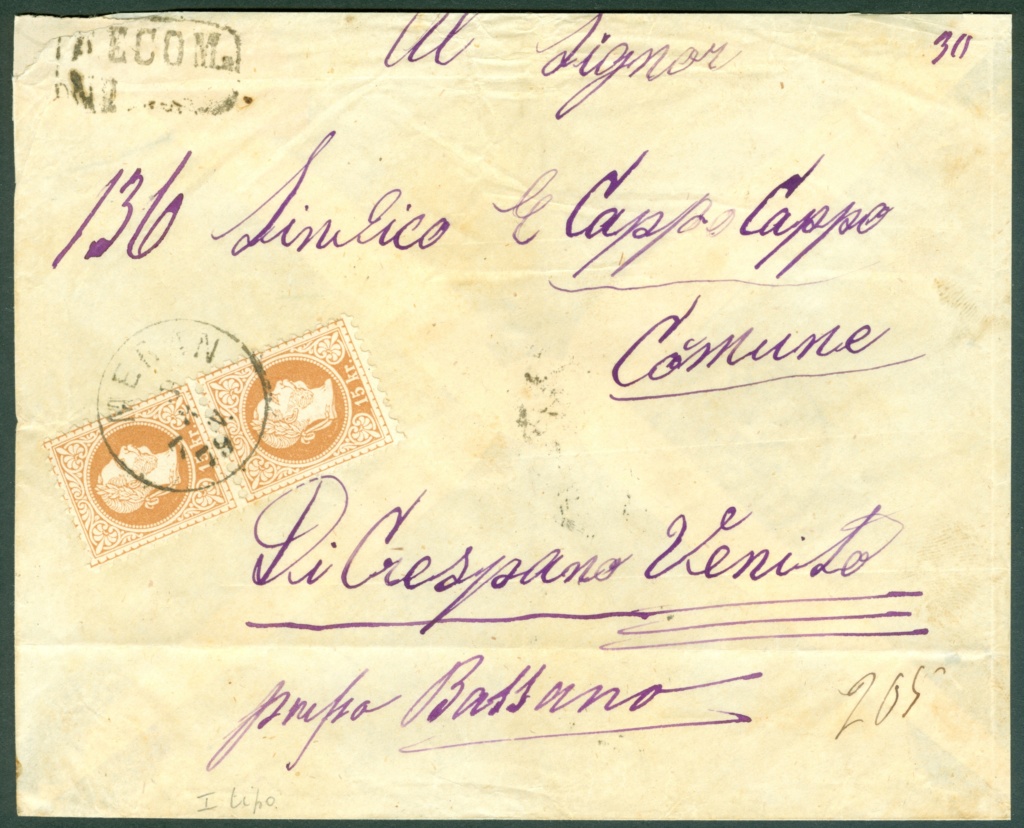 RECOM.
Nº
Al Signor
30
136 Sindico E Cappo Cappo
Comune
MERAN
15 KR
15 KR
Di Crespano Venito
presso Bassano
205
I tipo